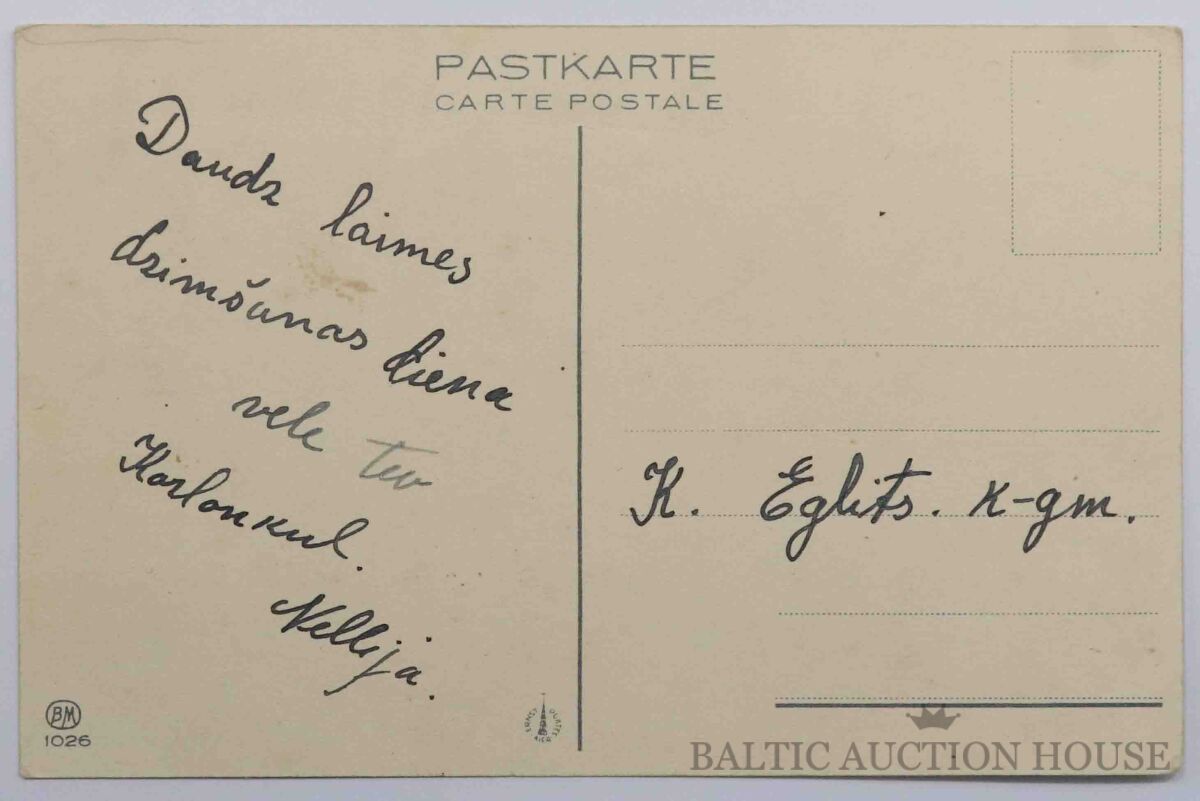 PASTKARTE
CARTE POSTALE
Daudz laimes
dzimšanas diena
vele tev
Karlonkul.
Nellija.
K. Eglits. k-gm.
BM
1026
ERNST
BALTIC AUCTION HOUSE